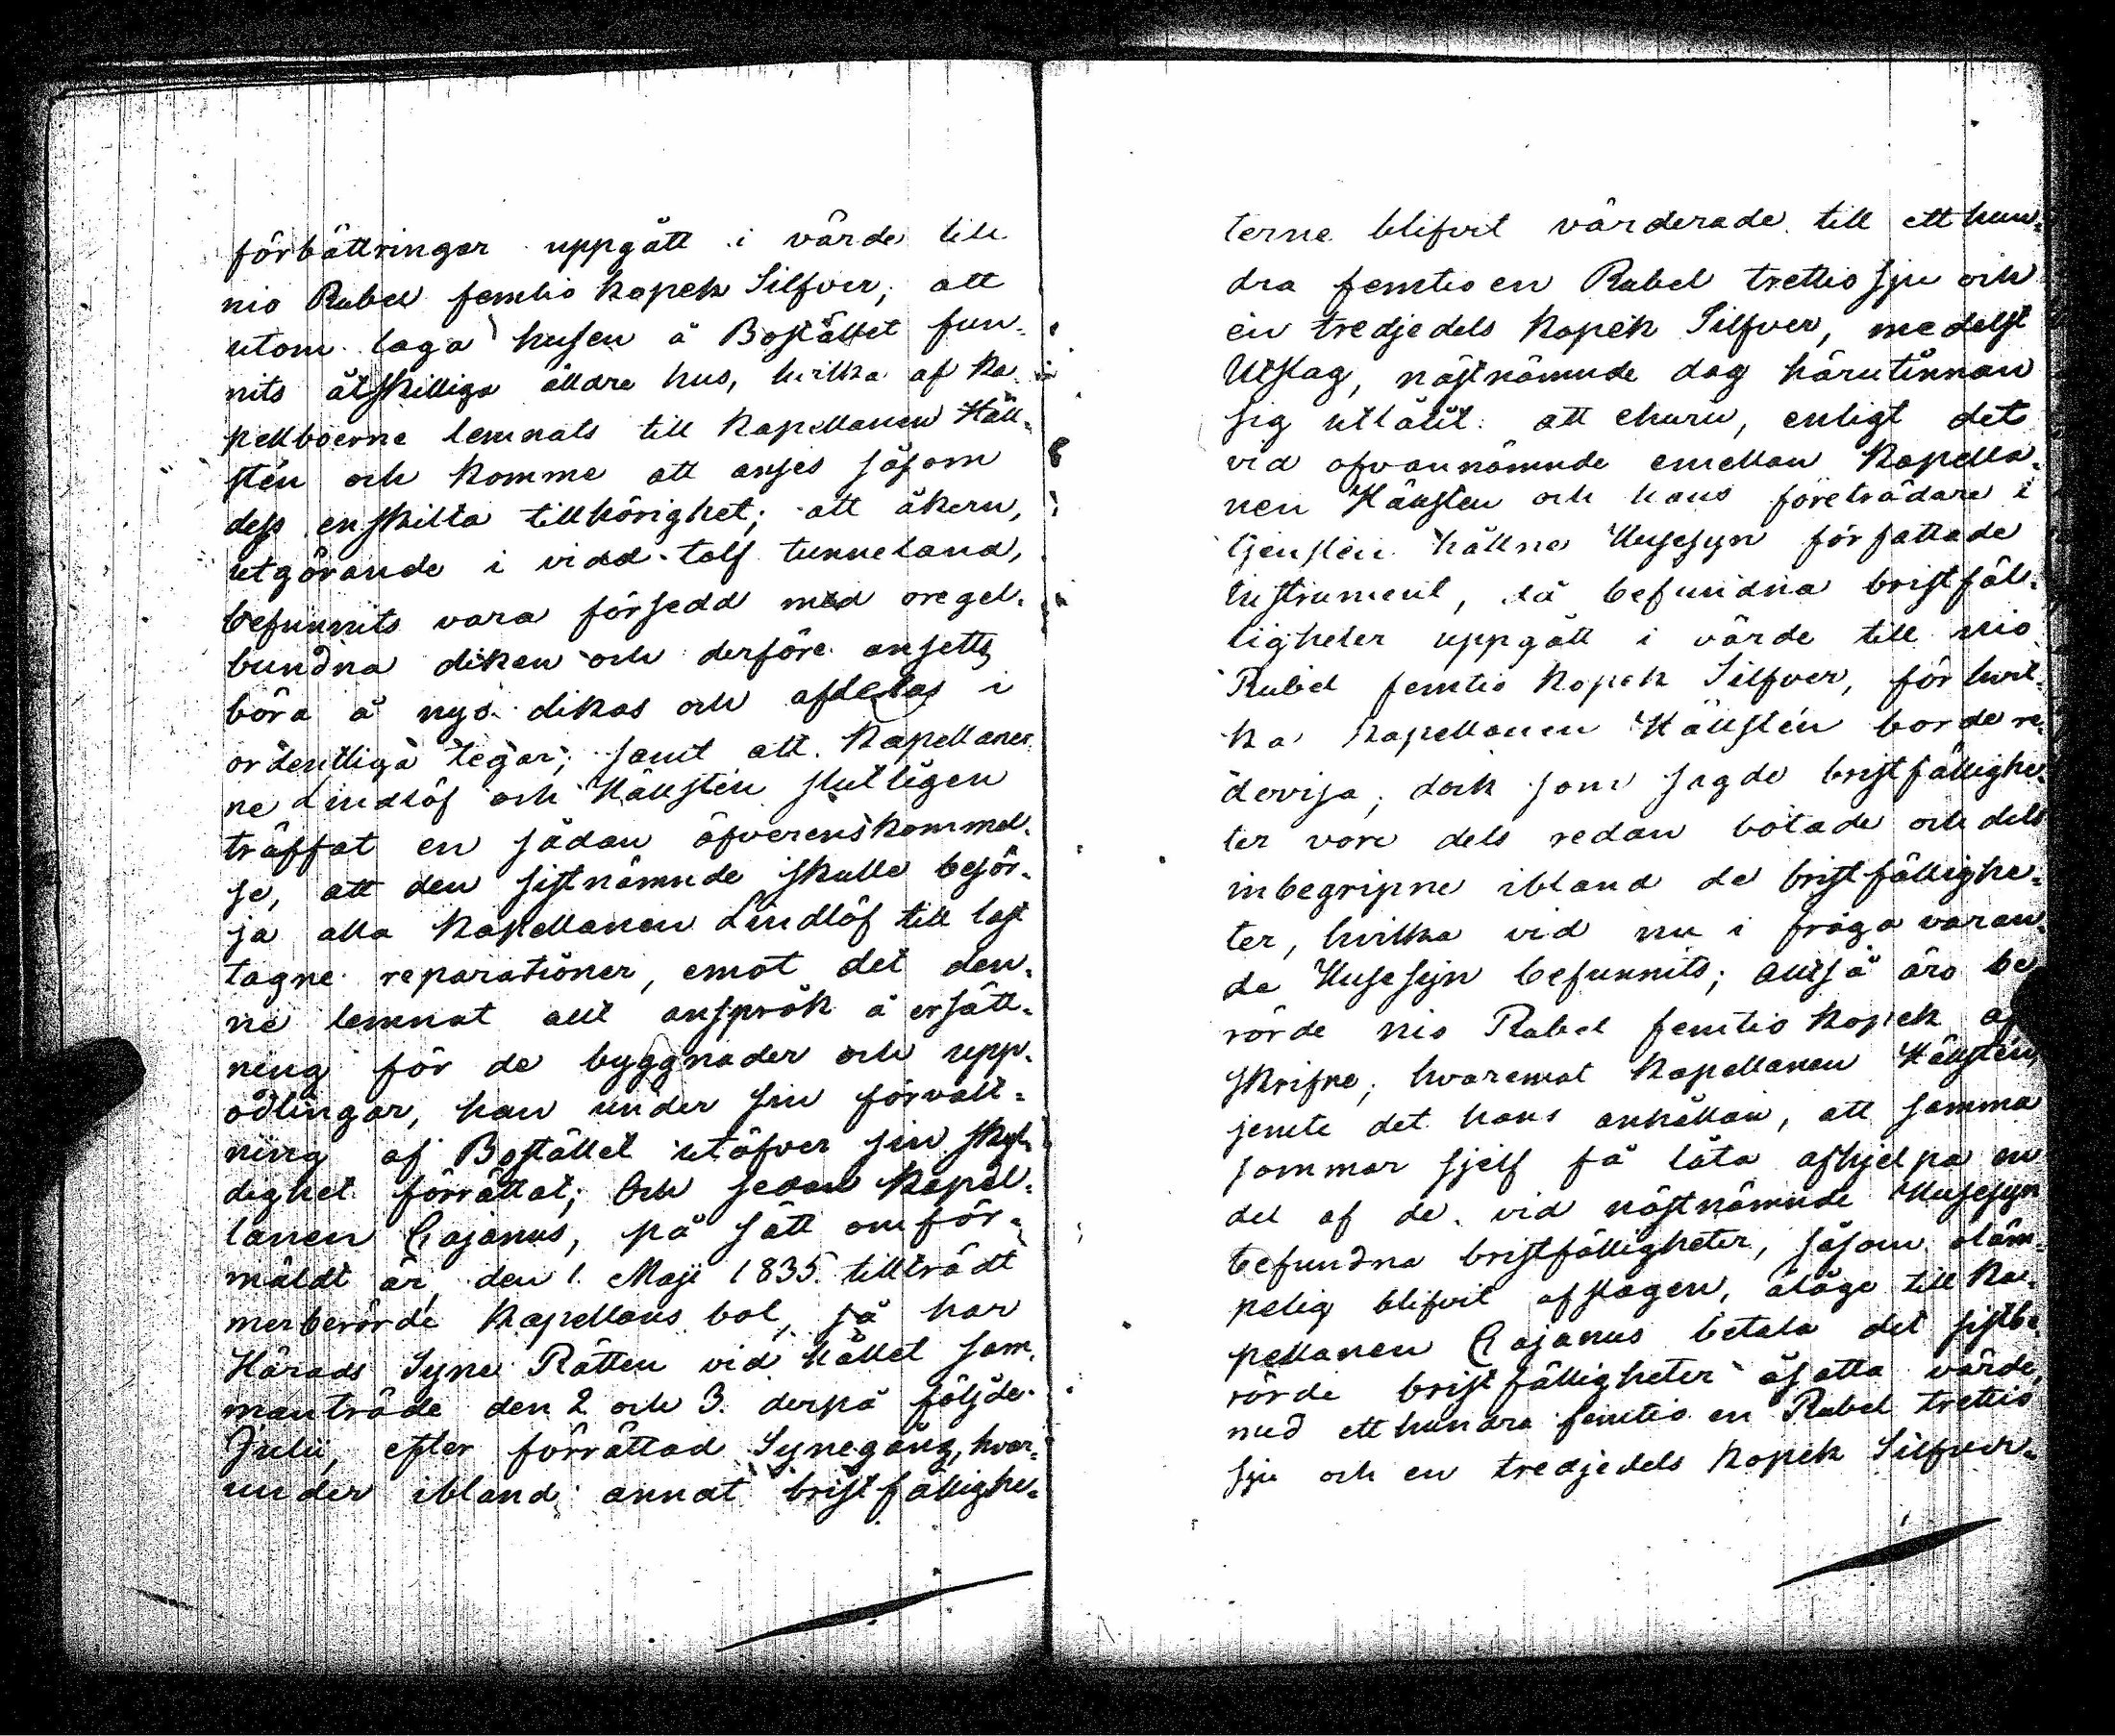 förbättringar uppgått i värde till
nio Rubel femtio kopek Silfver; att
utom laga husen å Bostället fun-
nits åtskilliga äldre hus, hvilka af ka-
pellboerne lemnats till Kapellanen Häll-
stén och komme att anses såsom
dess enskilta tillhörighet; att åkern,
utgörande i vidd tolf tunneland,
befunnits vara försedd med oregel-
bundna diken och derföre ansetts
böra å nyo dikas och afdelas i
ordentliga tegar; samt att Kapellaner-
ne Lindlöf och Hällstén slutligen
träffat en sådan öfverenskommel-
se, att den sistnämnde skulle besör-
ja alla Kapellanen Lindlöf till last
tagne reparationer, emot det den-
ne lemnat allt anspråk å ersätt-
ning för de byggnader och upp-
odlingar, han under sin förvalt-
ning af Bostället utöfver sin skyl-
dighet förrättat; Och sedan Kapel-
lanen Cajanus, på sätt omför-
mäldt är, den 1. Maji 1835. tillträdt
merberörde Kapellans bol, så har
Härads Syne Rätten vid hållet sam-
manträde den 2 och 3. derpå följde
Julii, efter förrättad Synegång, hvar-
under ibland annat bristfällighe-
terne blifvit värderade till ett hun-
dra femtio en Rubel trettio sju och
en tredjedels kopek Silfver, medelst
Utslag, nästnämnde dag härutinnan
sig utlåtit: att ehuru, enligt det
vid ofvannämnde emellan Kapella-
nen Hällsten och hans företrädare i
tjensten hållne Husesyn författade
Instrument, då befundna bristfäl-
ligheter uppgått i värde till nio
Rubel femtio kopek Silfver, för hvil-
ka Kapellanen Hällstén borde re-
dovisa; dock som sagde bristfällighe-
ter vore dels redan botade och dels
inbegripne ibland de bristfällighe-
ter, hvilka vid nu i fråga varan-
de Husesyn befunnits; altså äro be-
rörde nio Rubel femtio kopek af-
skrifne; hvaremot Kapellanen Hällstén,
jemte det hans anhållan, att samma
sommar sjelf få låta afhjelpa en
del af de vid nästnämnde Husesyn
befundna bristfälligheter, såsom oläm-
pelig blifvit afslagen, ålåge till Ka-
pellanen Cajanus betala det sistbe-
rörde bristfälligheter åsatta värde,
med ett hundra femtio en Rubel trettio
sju och en tredjedels kopek Silfver-